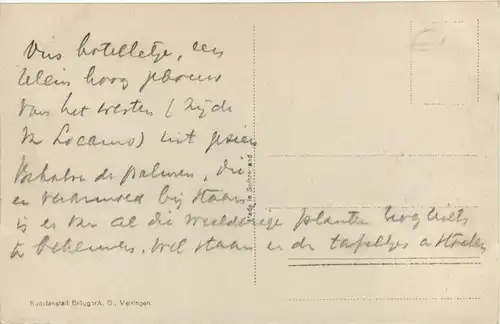 Ons hotelletje, een
klein hoog gebouw
van het westen ( zijde
v Locarno) uit gezien
Behalve de palmen, die
er verkleumd bij staan
is er van al die weelderige planten nog niets
te bekennen. Wel staan er de tafeltjes en stoelen
Made in Switzerland
Kunstanstalt Brügger A. G., Meiringen.